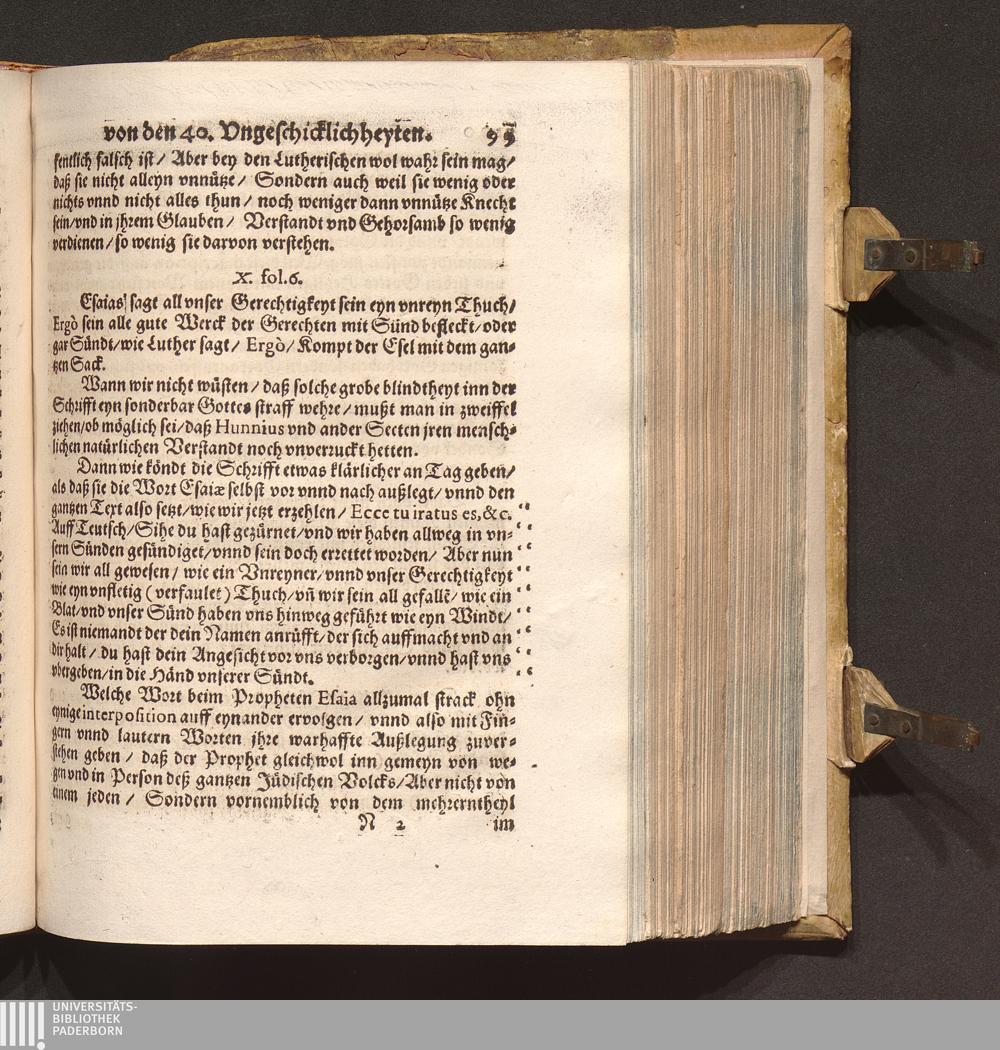 von den 40. Vngeschicklichheyten. 99
fentlich falsch ist / Aber bey den Lutherischen wol wahr sein mag/
daß sie nicht alleyn vnnütze / Sondern auch weil sie wenig oder
nichts vnnd nicht alles thun / noch weniger dann vnnütze Knecht
sein/vnd in jhrem Glauben / Verstandt vnd Gehorsamb so wenig
verdienen / so wenig sie darvon verstehen.
X. fol.6.
Esaias sagt all vnser Gerechtigkeyt sein eyn vnreyn Thuch/
Ergò sein alle gute Werck der Gerechten mit Sünd befleckt/oder
gar Sündt/wie Luther sagt / Ergò/ Kompt der Esel mit dem gan-
tzen Sack.
Wann wir nicht wüsten / daß solche grobe blindtheyt inn der
Schrifft eyn sonderbar Gottes straff wehre / mußt man in zweiffel
ziehen/ob möglich sei/daß Hunnius vnd ander Secten jren mensch-
lichen natürlichen Verstandt noch vnverruckt hetten.
Dann wie köndt die Schrifft etwas klärlicher an Tag geben/
als daß sie die Wort Esaiæ selbst vor vnnd nach außlegt/ vnnd den
gantzen Text also setzt/wie wir jetzt erzehlen / Ecce tu iratus es,&c. “
Auff Teutsch/Sihe du hast gezürnet/vnd wir haben allweg in vn- “
sern Sünden gesündiget/vnnd sein doch errettet worden/ Aber nun “
sein wir all gewesen / wie ein Vnreyner/vnnd vnser Gerechtigkeyt “
wie eyn vnfletig (verfaulet) Thuch/ vñ wir sein all gefallẽ/ wie ein “
Blat/vnd vnser Sünd haben vns hinweg geführt wie eyn Windt/ “
Es ist niemandt der dein Namen anrüfft/der sich auffmacht vnd an “
dir halt / du hast dein Angesicht vor vns verborgen/vnnd hast vns “
vbergeben/in die Händ vnserer Sündt. “
Welche Wort beim Propheten Esaia allzumal strack ohn
eynige interposition auff eynander ervolgen / vnnd also mit Fin-
gern vnnd lautern Worten jhre warhaffte Außlegung zuver-
stehen geben / daß der Prophet gleichwol inn gemeyn von we-
gen vnd in Person deß gantzen Jüdischen Volcks/Aber nicht von
einem jeden / Sondern vornemblich von dem mehrerntheyl
N 2 im
UNIVERSITÄTS-
BIBLIOTHEK
PADERBORN